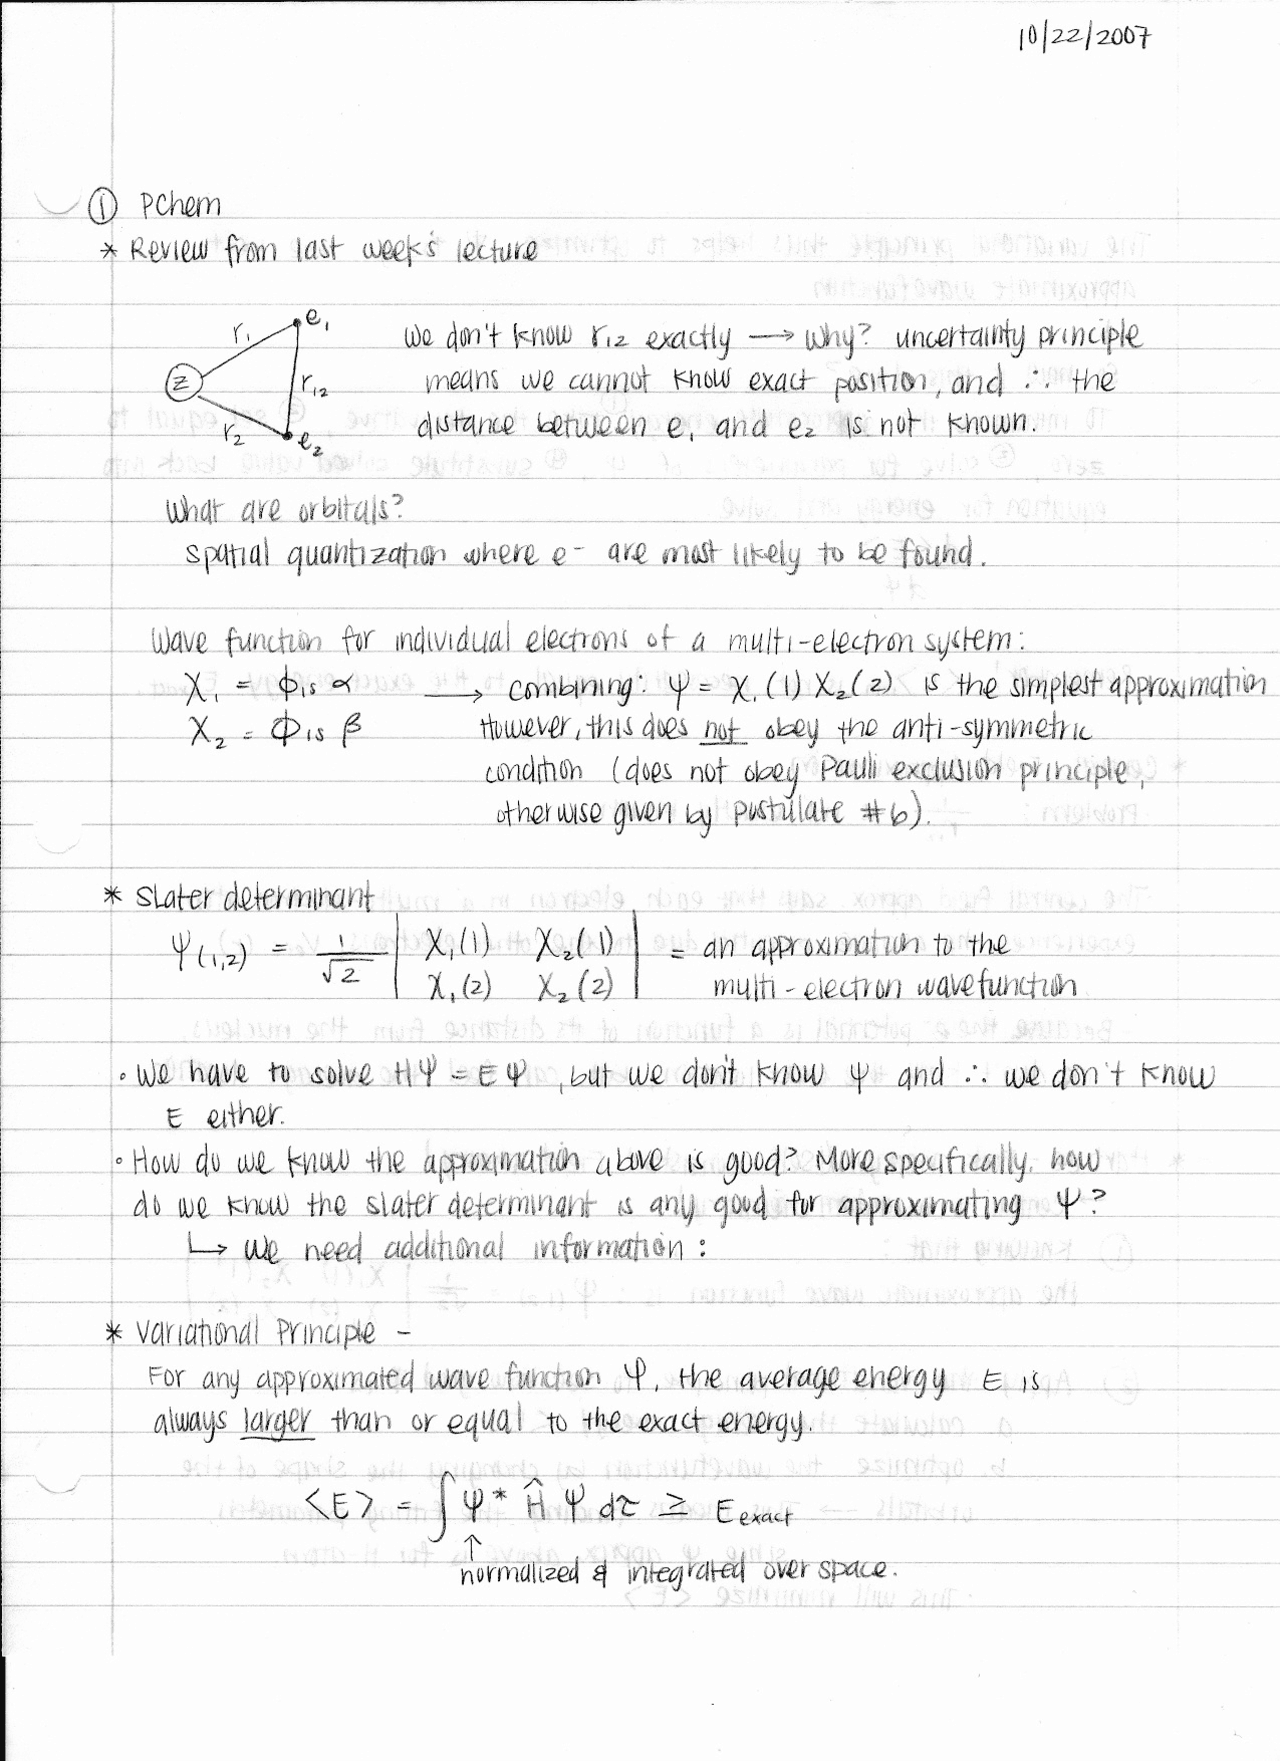 10/22/2007
① PChem
* Review from last week's lecture
r₁ e₁
z r₁₂
r₂ e₂
we don't know r₁₂ exactly → why? uncertainty principle
means we cannot know exact position, and ∴ the
distance between e₁ and e₂ is not known.
What are orbitals?
spatial quantization where e⁻ are most likely to be found.
Wave function for individual electrons of a multi-electron system:
χ₁ = ϕ₁s α → combining: Ψ = χ₁(1) χ₂(2) is the simplest approximation
χ₂ = ϕ₁s β However, this does not obey the anti-symmetric
condition (does not obey Pauli exclusion principle,
otherwise given by Postulate #6).
* Slater determinant
Ψ(1,2) = 1/√2 | χ₁(1) χ₂(1) | = an approximation to the
| χ₁(2) χ₂(2) | multi-electron wavefunction
• We have to solve HΨ = EΨ, but we don't know Ψ and ∴ we don't know
E either.
• How do we know the approximation above is good? More specifically, how
do we know the slater determinant is any good for approximating Ψ?
↳ we need additional information:
* Variational Principle -
For any approximated wave function Ψ, the average energy E is
always larger than or equal to the exact energy.
<E> = ∫ Ψ* Ĥ Ψ dτ ≥ E exact
↑
normalized & integrated over space.